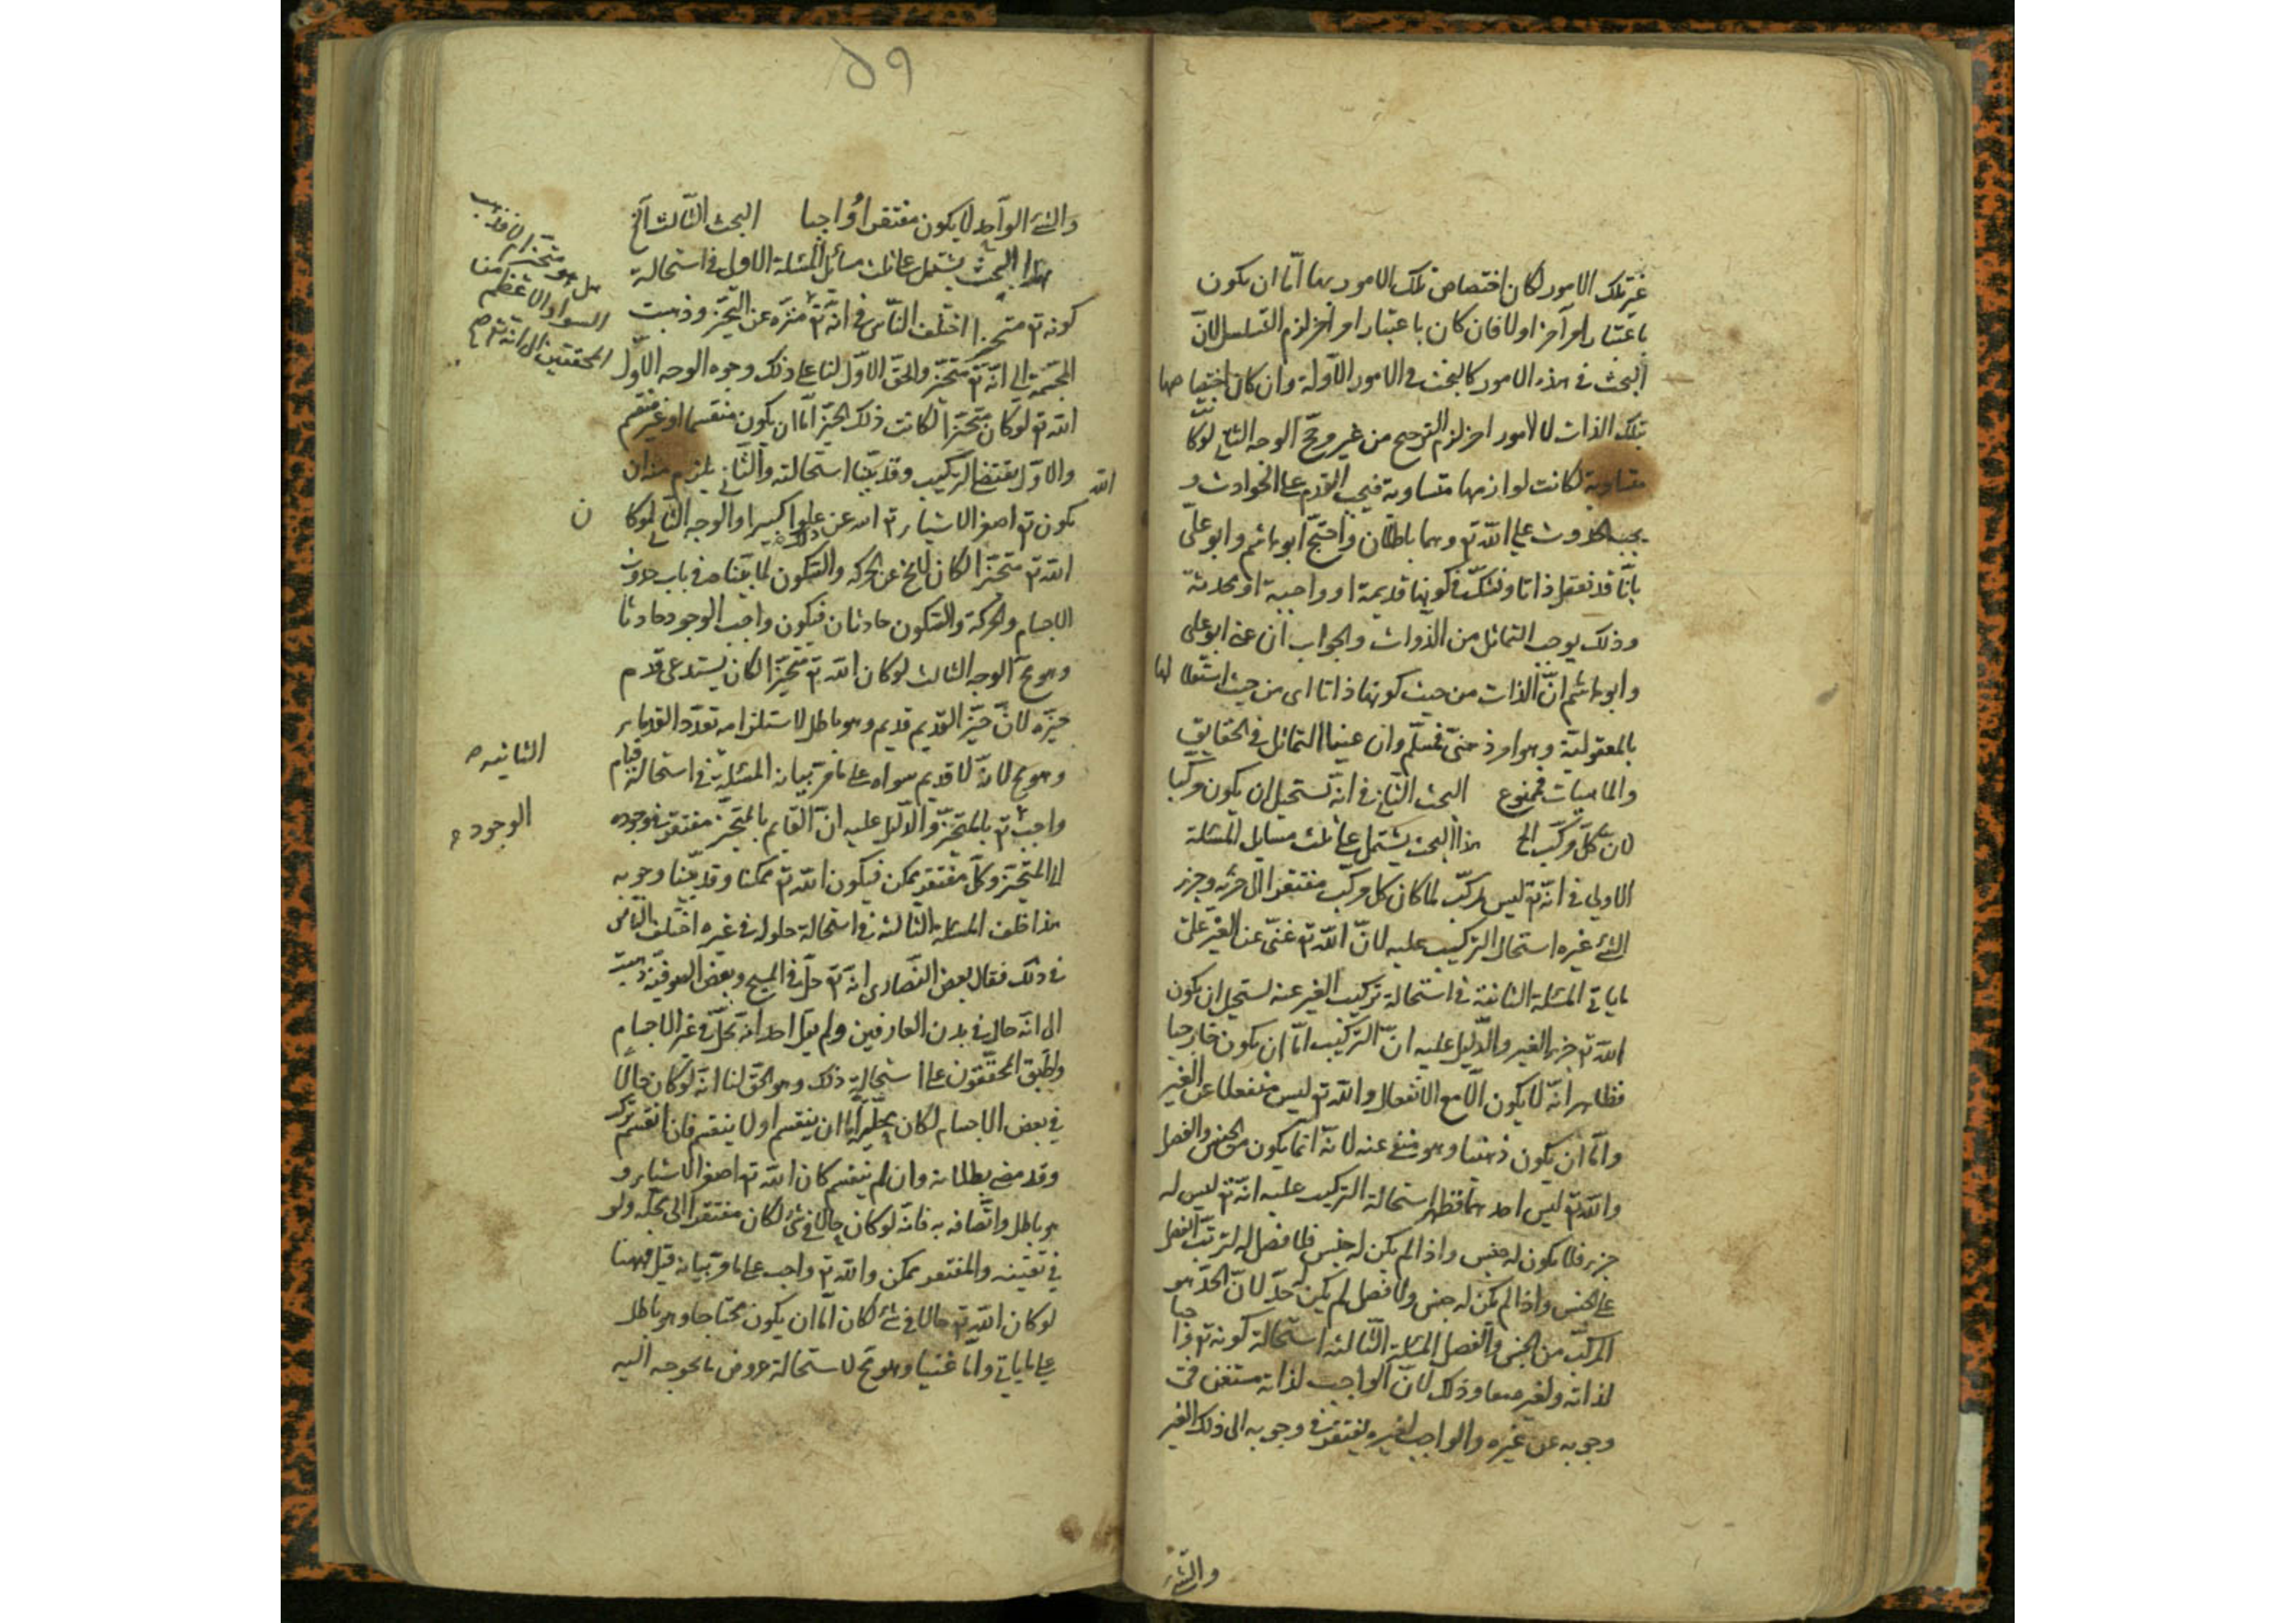 غير تلك الامور لكان اختصاص تلك الامور بها اما ان يكون
باعتبار امر آخر اولا فان كان باعتبار امر آخر لزم التسلسل لان
البحث فى هذه الامور كالبحث فى الامور الاولة وان كان اختصاصها
بتلك الذات لا لامور اخر لزم الترجيح من غير مرجح الوجه الثانى لو كانت
متساوية لكانت لوازمها متساوية فيجب القدم على الحوادث و
يجب الحدوث على الله تع وهما باطلان واحتج ابو هاشم وابو على
بانا قد نعقل ذاتا ونشك فى كونها قديمة او واجبة او محدثة
وذلك يوجب التماثل من الذوات والجواب ان عنى ابو على
وابو هاشم ان الذات من حيث كونها ذاتا اى من حيث استقلالها
بالمعقولية وهو امر ذهنى فمسلم وان عنيا التماثل فى الحقايق
والماهيات فممنوع البحث الثانى فى انه يستحيل ان يكون مركبا
لان كل مركب الخ هذا البحث يشتمل على ثلث مسايل المسئلة
الاولى فى انه تع ليس بمركب لما كان كل مركب مفتقرا الى جزئه وجزء
الشئ غيره استحال التركيب عليه لان الله تع غنى عن الغير على
ما يأتى المسئلة الثانية فى استحالة تركيب الغير عنه يستحيل ان يكون
الله تع جزء الغير والدليل عليه ان التركيب اما ان يكون خارجيا
فظاهر انه لا يكون الا مع الانفعال والله تع ليس منفعلا عن الغير
واما ان يكون ذهنيا وهو منفى عنه لانه انما يكون من الجنس والفصل
والله تع ليس احدهما فظهر استحالة التركيب عليه انه تع ليس له
جزء فلا يكون له جنس واذا لم يكن له جنس فلا فصل له لترتب الفصل
على الجنس واذا لم يكن له جنس ولا فصل لم يكن له حد لان الحد هو
المركب من الجنس والفصل المسئلة الثالثة استحالة كونه تع واجبا
لذاته ولغيره معا وذلك لان الواجب لذاته مستغن فى
وجوبه عن غيره والواجب لغيره يفتقر فى وجوبه الى ذلك الغير
والشئ
٥٩
والشئ الواحد لا يكون مفتقرا واجبا البحث الثالث آلخ
هذا البحث يشتمل على ثلث مسائل المسئلة الاولى فى استحالة
كونه تع متحيزا اختلف الناس فى انه تع منزه عن التحيز وذهبت
المجسمة الى انه تع متحيز والحق الاول لنا على ذلك وجوه الوجه الاول
الله تع لو كان متحيزا لكانت ذلك الحيز اما ان يكون منقسما او غير منقسم
والاول يقتضى التركيب وقد بينا استحالته والثانى يلزم منه ان
الله
يكون تع اصغر الاشياء تع الله عن ذلك علوا كبيرا والوجه الثانى لو كا
ن
الله تع متحيزا لكان لا يخ عن الحركة والسكون لما بيناه فى باب حدوث
الاجسام والحركة والسكون حادثان فيكون واجب الوجود حادثا
وهو مح الوجه الثالث لو كان الله تع متحيزا لكان يستدعى قدم
حيزه لان حيز القديم قديم وهو باطل لاستلزامه تعدد القدماء
وهو مح لانه لا قديم سواه على ما مر بيانه المسئلة فى استحالة قيام
الثانية صح
واجب تع بالمتحيز والدليل عليه ان القايم بالمتحيز مفتقر فى وجوده
الوجود
الى المتحيز وكل مفتقر ممكن فيكون الله تع ممكنا وقد بينا وجوبه
هذا خلف المسئلة الثالثة فى استحالة حلوله فى غيره اختلف الناس
فى ذلك فقال بعض النصارى انه تع حل فى المسيح وبعض الصوفية ذهبت
الى انه حال فى بدن العارفين ولم يقل احد انه يحل فى غير الاجسام
واطبق المحققون على استحالة ذلك وهو الحق لنا انه لو كان حالا
فى بعض الاجسام لكان محله اما ان ينقسم اولا ينقسم فان انقسم تركب
وقد مضى بطلانه وان لم ينقسم كان الله تع اصغر الاشياء و
هو باطل واتصافه به فانه لو كان حالا فى شئ لكان مفتقرا الى محله ولو
فى تعينه والمفتقر ممكن والله تع واجب على ما مر بيانه قيل فيهنا
لو كان الله تع حالا فى شئ لكان اما ان يكون محتاجا وهو باطل
على ما يأتى واما غنيا وهو مح لاستحالة عروض ما يحوجه اليه
هل هو متحيز ام لا فذهب
السواد الاعظم من
المحققين الى انه تع صح